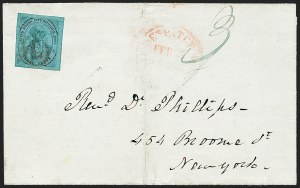 3
Revd Dr Phillips-
454 Broome St
New-york.